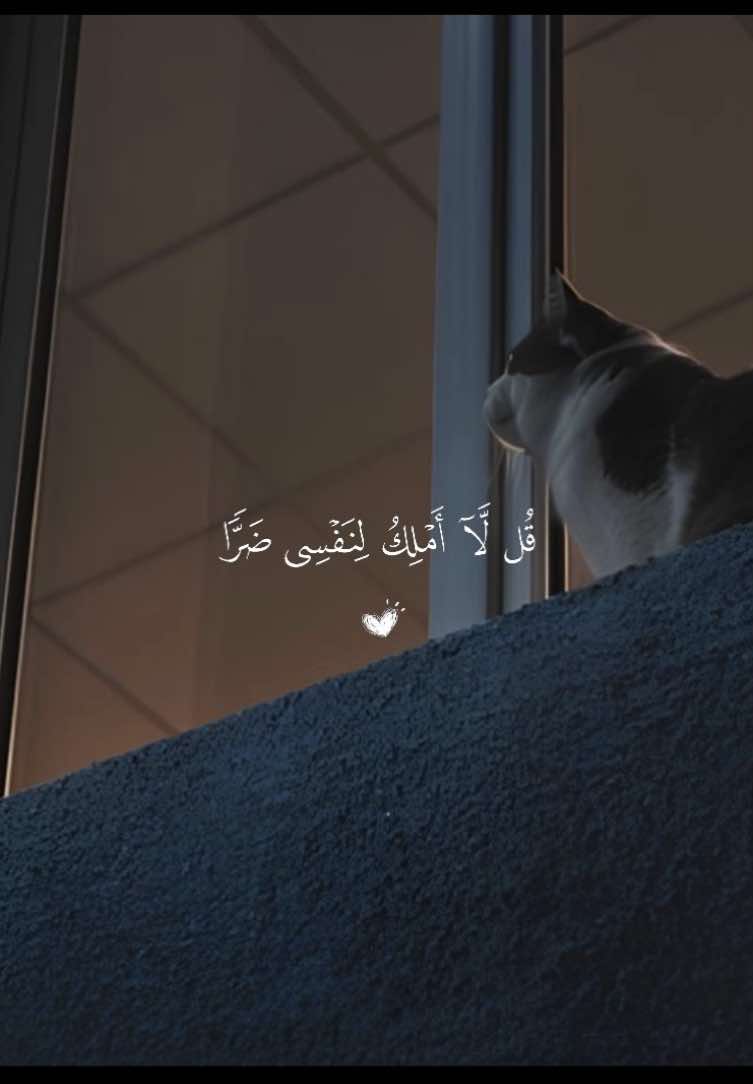 قُل لَّآ أَمْلِكُ لِنَفْسِى ضَرًّا